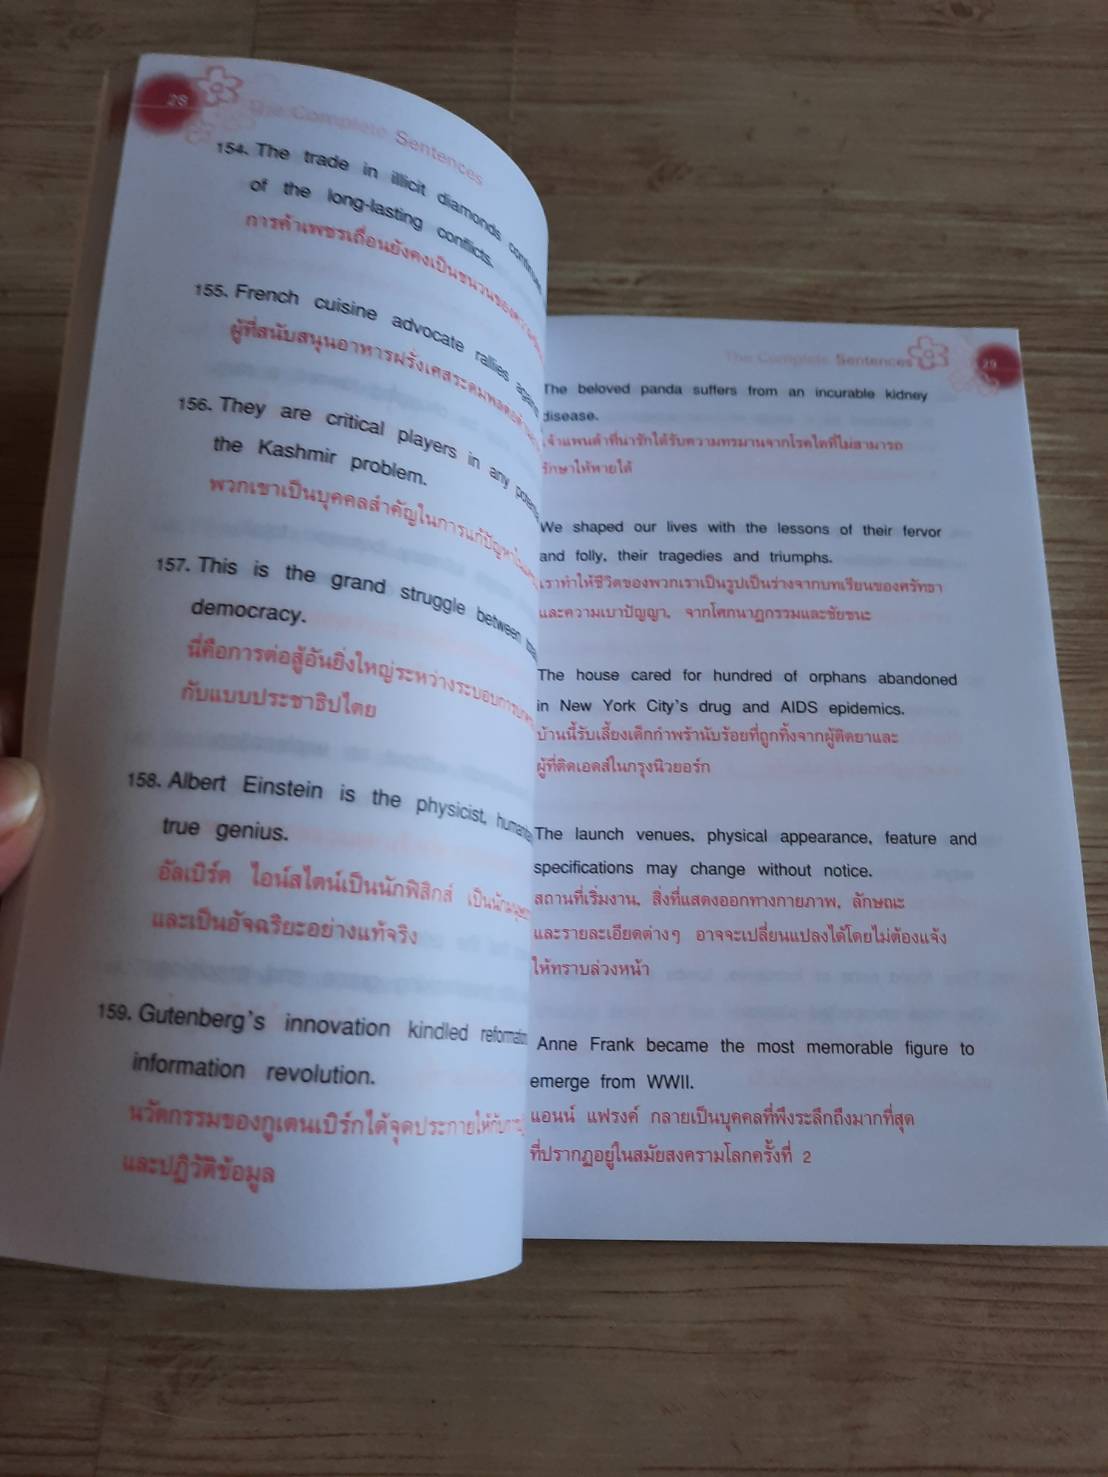 28
The Complete Sentences
154. The trade in illicit diamonds
of the long-lasting conflicts.
การค้าเพชรเถื่อนยังคงเป็นชนวนของ
155. French cuisine advocate rallies
ผู้ที่สนับสนุนอาหารฝรั่งเศสระดมพล
156. They are critical players in any
the Kashmir problem.
พวกเขาเป็นบุคคลสำคัญในการแก้ปัญหา
157. This is the grand struggle between
democracy.
นี่คือการต่อสู้อันยิ่งใหญ่ระหว่างระบอบ
กับแบบประชาธิปไตย
158. Albert Einstein is the physicist,
true genius.
อัลเบิร์ต ไอน์สไตน์เป็นนักฟิสิกส์
และเป็นอัจฉริยะอย่างแท้จริง
159. Gutenberg's innovation kindled
information revolution.
นวัตกรรมของกูเตนเบิร์กได้จุดประกายให้กับ
และปฏิวัติข้อมูล
The Complete Sentences
29
The beloved panda suffers from an incurable kidney
disease.
เจ้าแพนด้าที่น่ารักได้รับความทรมานจากโรคไตที่ไม่สามารถ
รักษาให้หายได้
We shaped our lives with the lessons of their fervor
and folly, their tragedies and triumphs.
เราทำให้ชีวิตของพวกเราเป็นรูปเป็นร่างจากบทเรียนของศรัทธา
และความเบาปัญญา, จากโศกนาฏกรรมและชัยชนะ
The house cared for hundred of orphans abandoned
in New York City's drug and AIDS epidemics.
บ้านนี้รับเลี้ยงเด็กกำพร้านับร้อยที่ถูกทิ้งจากผู้ติดยาและ
ผู้ที่ติดเอดส์ในกรุงนิวยอร์ก
The launch venues, physical appearance, feature and
specifications may change without notice.
สถานที่เริ่มงาน, สิ่งที่แสดงออกทางกายภาพ, ลักษณะ
และรายละเอียดต่างๆ อาจจะเปลี่ยนแปลงได้โดยไม่ต้องแจ้ง
ให้ทราบล่วงหน้า
Anne Frank became the most memorable figure to
emerge from WWII.
แอนน์ แฟรงค์ กลายเป็นบุคคลที่พึงระลึกถึงมากที่สุด
ที่ปรากฏอยู่ในสมัยสงครามโลกครั้งที่ 2